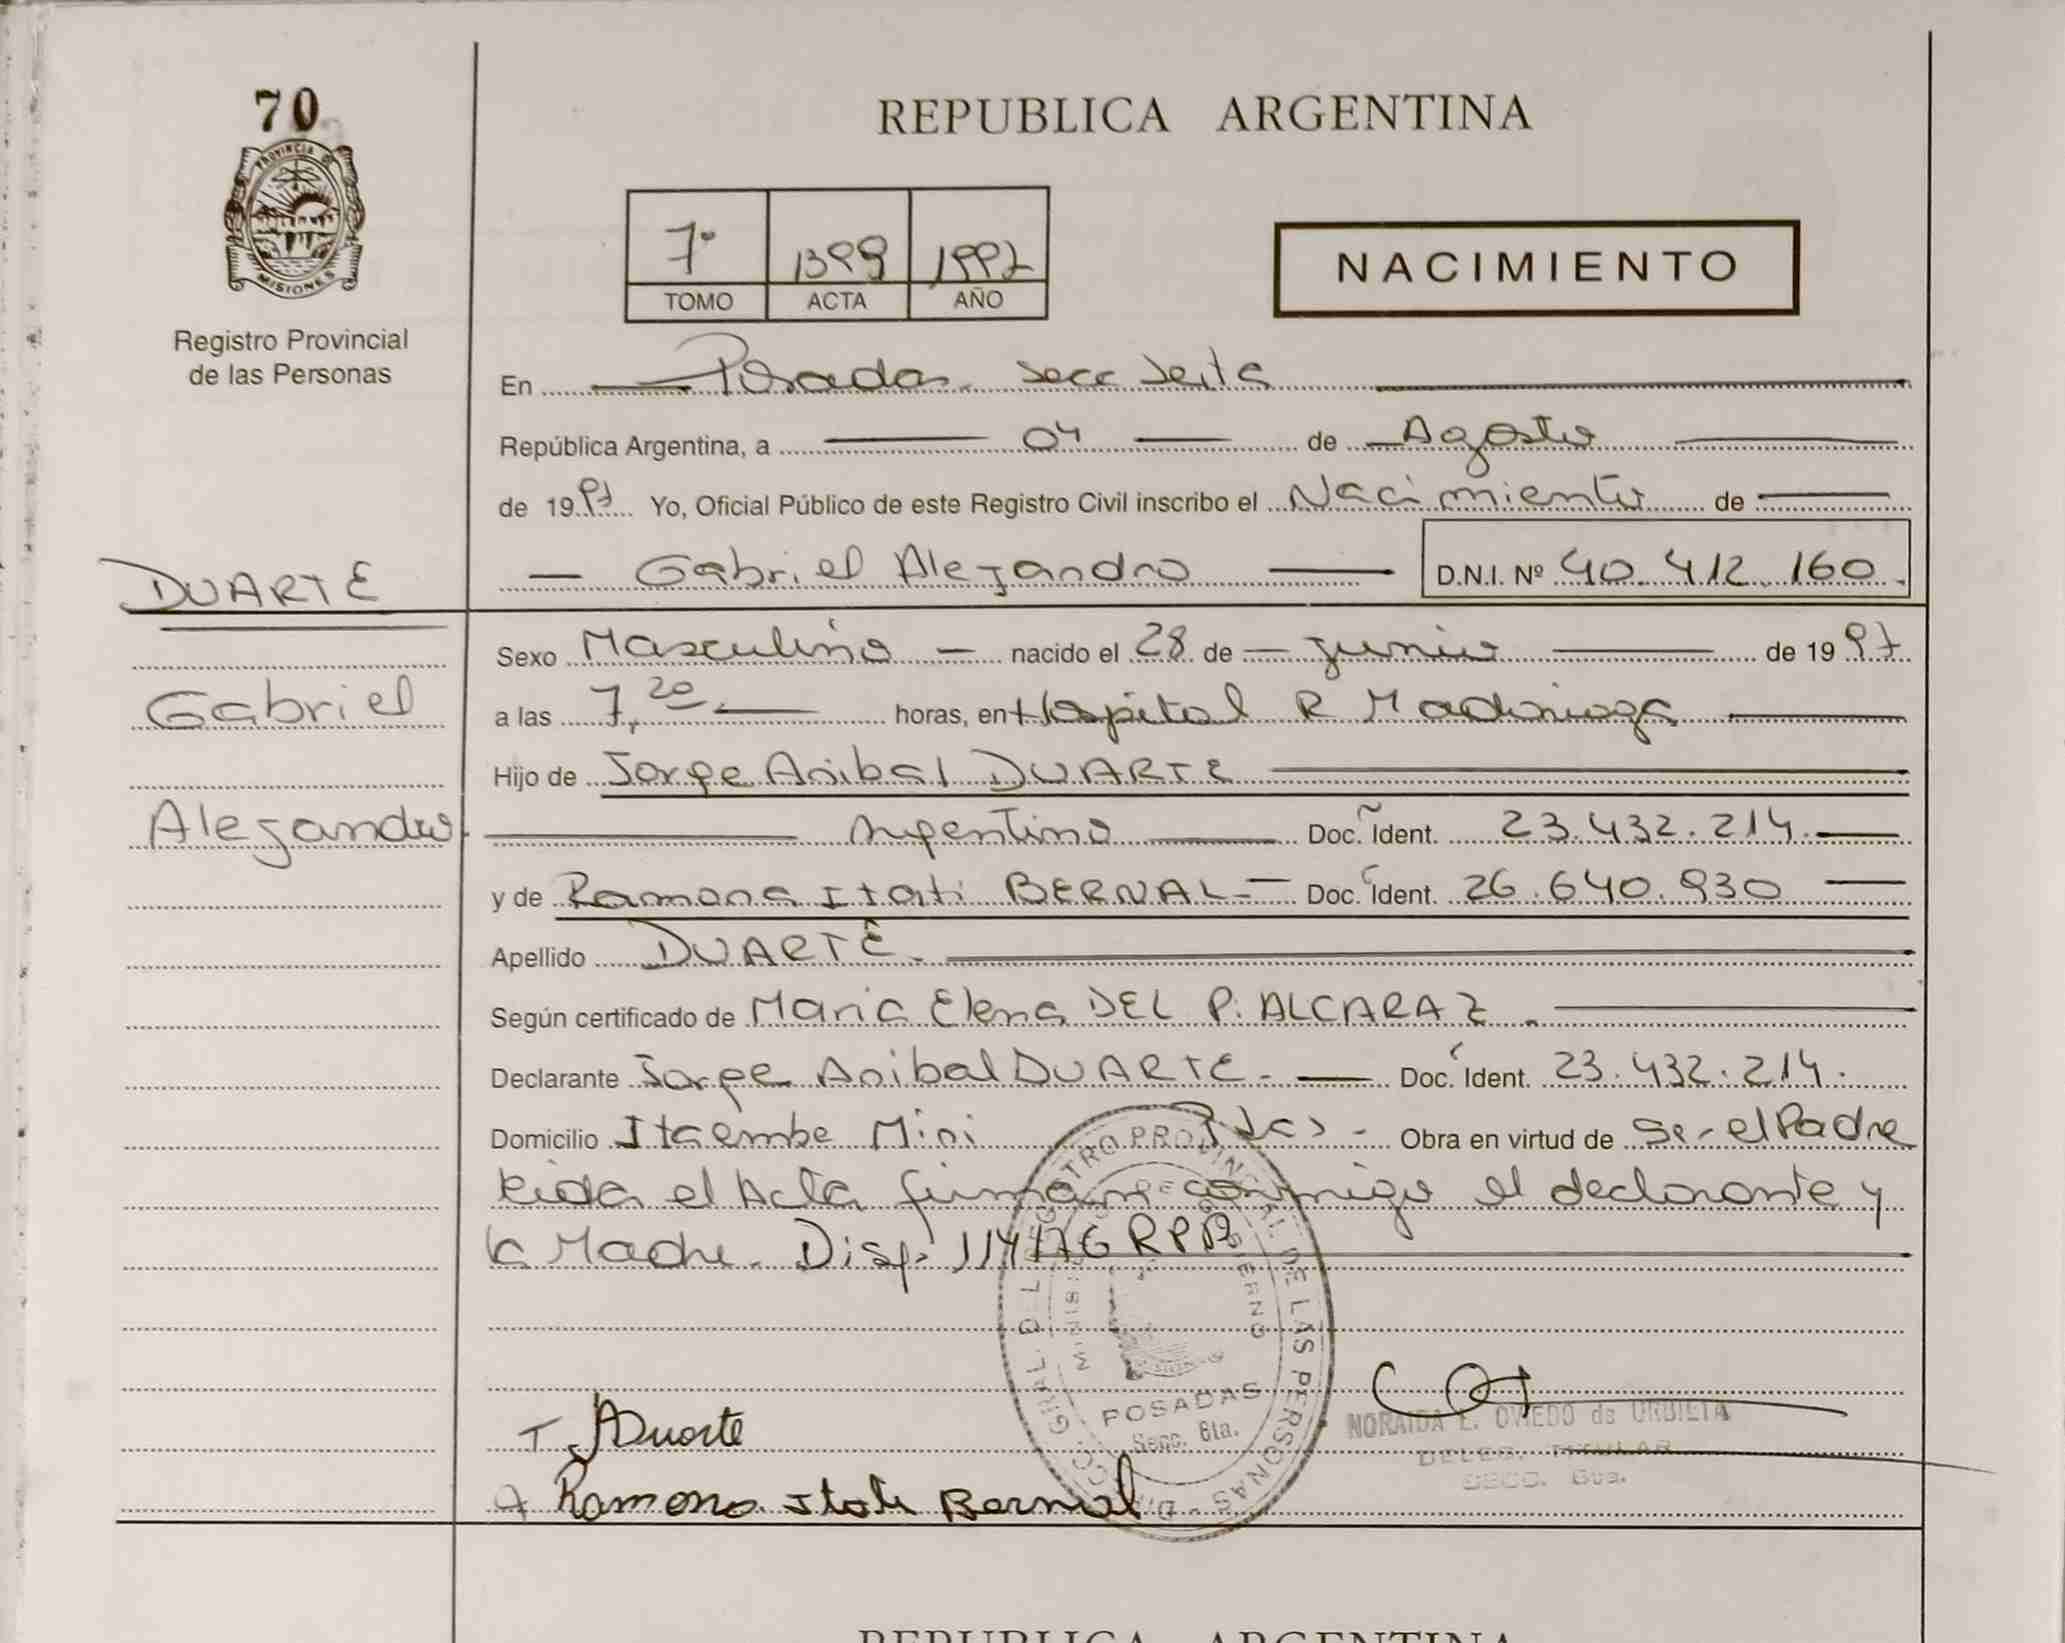 70
PROVINCIA DE
MISIONES
Registro Provincial
de las Personas
REPUBLICA ARGENTINA
7º 1399 1997
TOMO ACTA AÑO
NACIMIENTO
En Posadas. Secc Sexta
República Argentina, a 04 de Agosto
de 1997 Yo, Oficial Público de este Registro Civil inscribo el Nacimiento de
Gabriel Alejandro D.N.I. Nº 40.412.160.
DUARTE
Gabriel
Alejandro
Sexo Masculino nacido el 28 de junio de 1997
a las 7,20. horas, en Hospital R Madariaga
Hijo de Jorge Anibal DUARTE
Argentino Doc. Ident. 23.432.214.
y de Ramona Itati BERNAL Doc. Ident. 26.640.930
Apellido DUARTE.
Según certificado de Maria Elena DEL P. ALCARAZ.
Declarante Jorge Anibal DUARTE. Doc. Ident. 23.432.214.
Domicilio Itaembe Mini Pdas - Obra en virtud de Ser el Padre
Leida el Acta firman conmigo el declarante y
la Madre. Disp. 114/76 RPP
DIRECC. GRAL. DEL REGISTRO PROVINCIAL DE LAS PERSONAS
MINISTERIO DE GOBIERNO
MISIONES
POSADAS
Secc. 6ta.
Duarte
Ramona Itati Bernal
NORAIDA E. OVIEDO de URBIETA
DELEG. TITULAR
SECC. 6ta.
REPUBLICA ARGENTINA